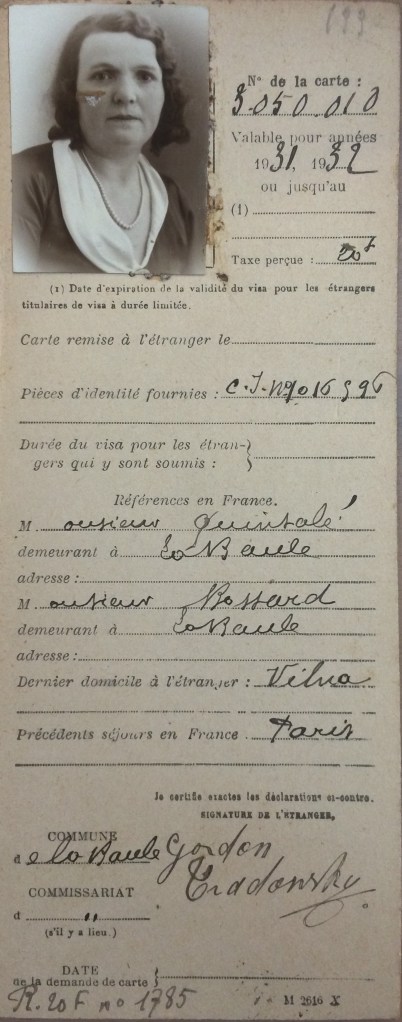 N° de la carte :
3.050.010
Valable pour années
1931, 1932
ou jusqu'au
(1)
Taxe perçue : 20f
(1) Date d'expiration de la validité du visa pour les étrangers
titulaires de visa à durée limitée.
Carte remise à l'étranger le
Pièces d'identité fournies : C.I. N° 016396
Durée du visa pour les étran-
gers qui y sont soumis :
Références en France.
Monsieur
demeurant à La Baule
adresse :
Monsieur Bossard
demeurant à La Baule
adresse :
Dernier domicile à l'étranger : Vilna
Précédents séjours en France . Paris
Je certifie exactes les déclarations ci-contre.
SIGNATURE DE L'ÉTRANGER,
COMMUNE
de la Baule
Gordon
COMMISSARIAT
d "
(s'il y a lieu.)
DATE
de la demande de carte
R. 20 F n° 1785
M 2616 X